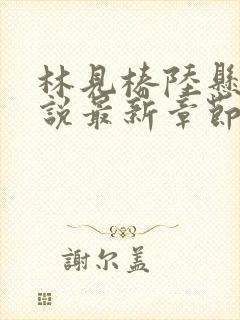 林見椿陸懸
說最新章節
謝尔盖